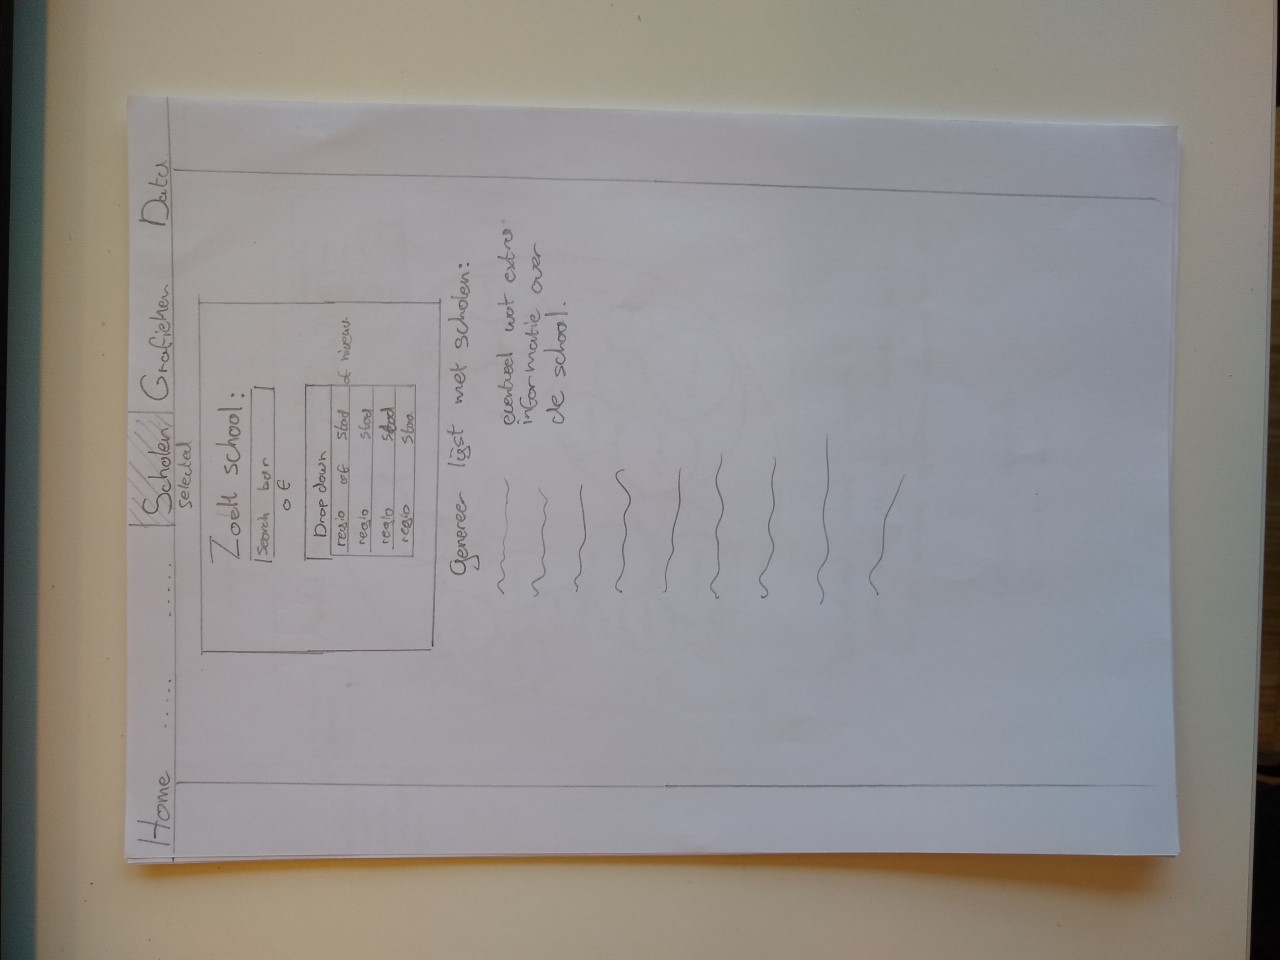 Home ..... ..... Scholen Grafieken Data
selected
Zoek school:
Search bar
of
Drop down
regio of stad of niveau.
regio stad
regio stad
regio stad
Genereer lijst met scholen:
eventueel wat extra
informatie over
de school.